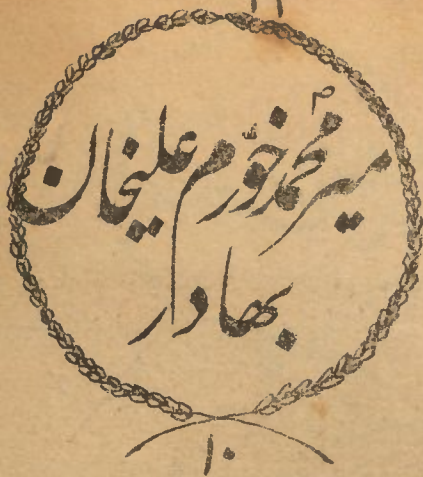 میر محمد خورم علیخان
بهادار
۱۰